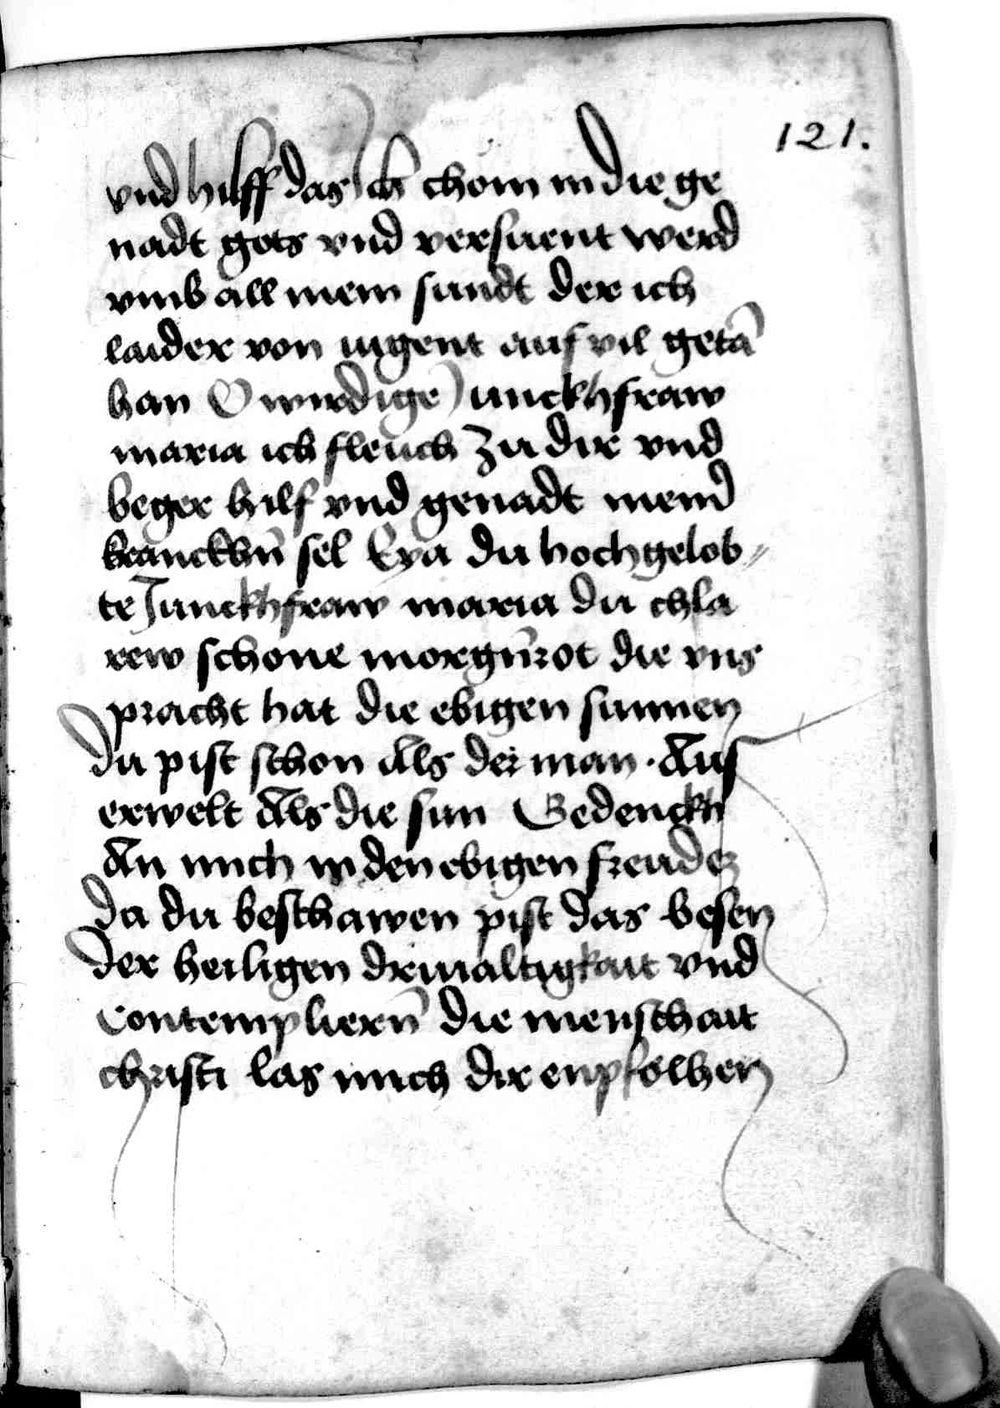 121.
vnd hilff das ich chom in die ge
nadt gots vnd versuent werd
vmb all mein sundt der ich
laider von iugent auf vil getā
han O wirdige Junckhfraw
maria ich fleuch zu dir vnd
beger hilf vnd genadt meinˀ
kranckhn̄ sel Eya du hochgelob〃
te Junckhfraw maria du chla
rew schone morgn̄rot die vns
pracht hat die ebigen sunnen
Du pist schon Als der man · Aus
erwelt Als die sun Gedenckh
An mich in den ebigen freudē
Da du beschawen pist das besen
Der heiligen driualtigkait vnd
Contempliern̄ die menschait
christi las mich dir enpfolhen